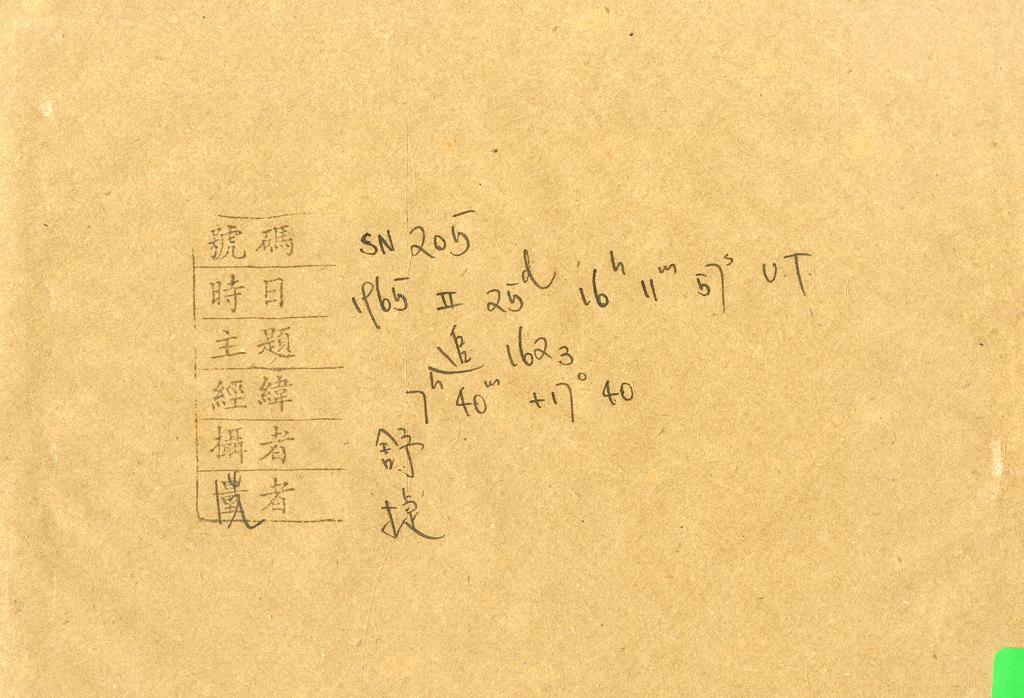 號碼 SN 205
時日 1965 II 25d 16h 11m 57s U.T.
主題 追 1623
經緯 7h 40m +17° 40
攝者 舒
者 捷